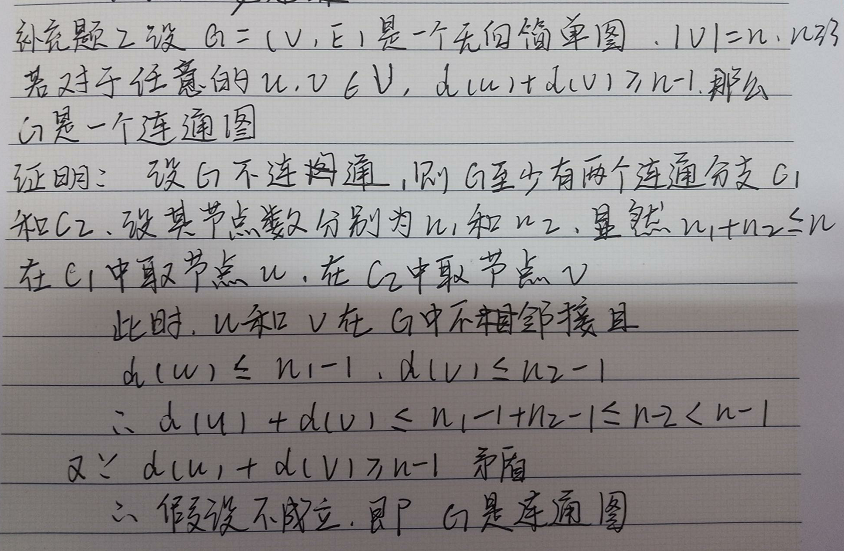 补充题2 设 G=(V,E)是一个无向简单图.|V|=n.n≥3
若对于任意的u,v∈V,d(u)+d(v)≥n-1.那么
G是一个连通图
证明: 设G不连通,则G至少有两个连通分支C1
和C2、设其节点数分别为n1和n2、显然n1+n2≤n
在C1中取节点u.在C2中取节点v
此时.u和v在G中不相邻接且
d(u)≤n1-1.d(v)≤n2-1
∴d(u)+d(v)≤n1-1+n2-1≤n-2<n-1
又∵d(u)+d(v)≥n-1 矛盾
∴假设不成立.即 G是连通图